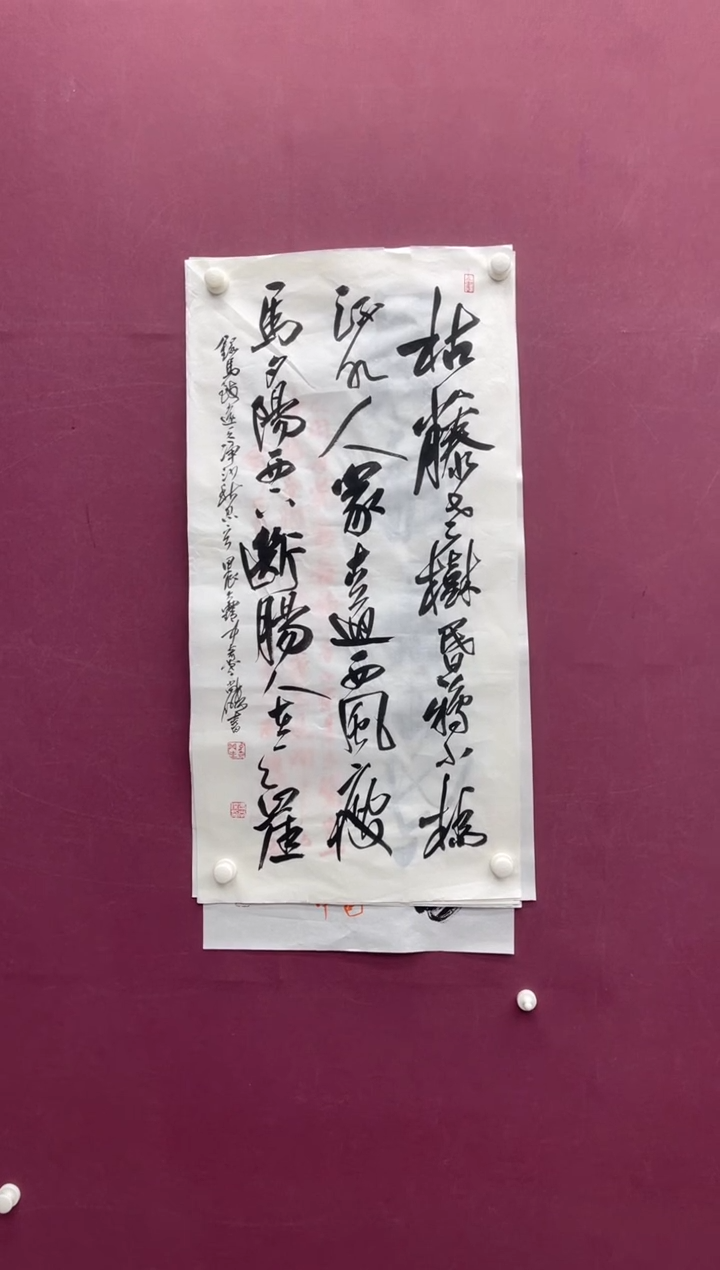 枯藤老樹昏鴉小橋
流水人家古道西風瘦
馬夕陽西下斷腸人在天崖
錄馬致遠天净沙秋思 書